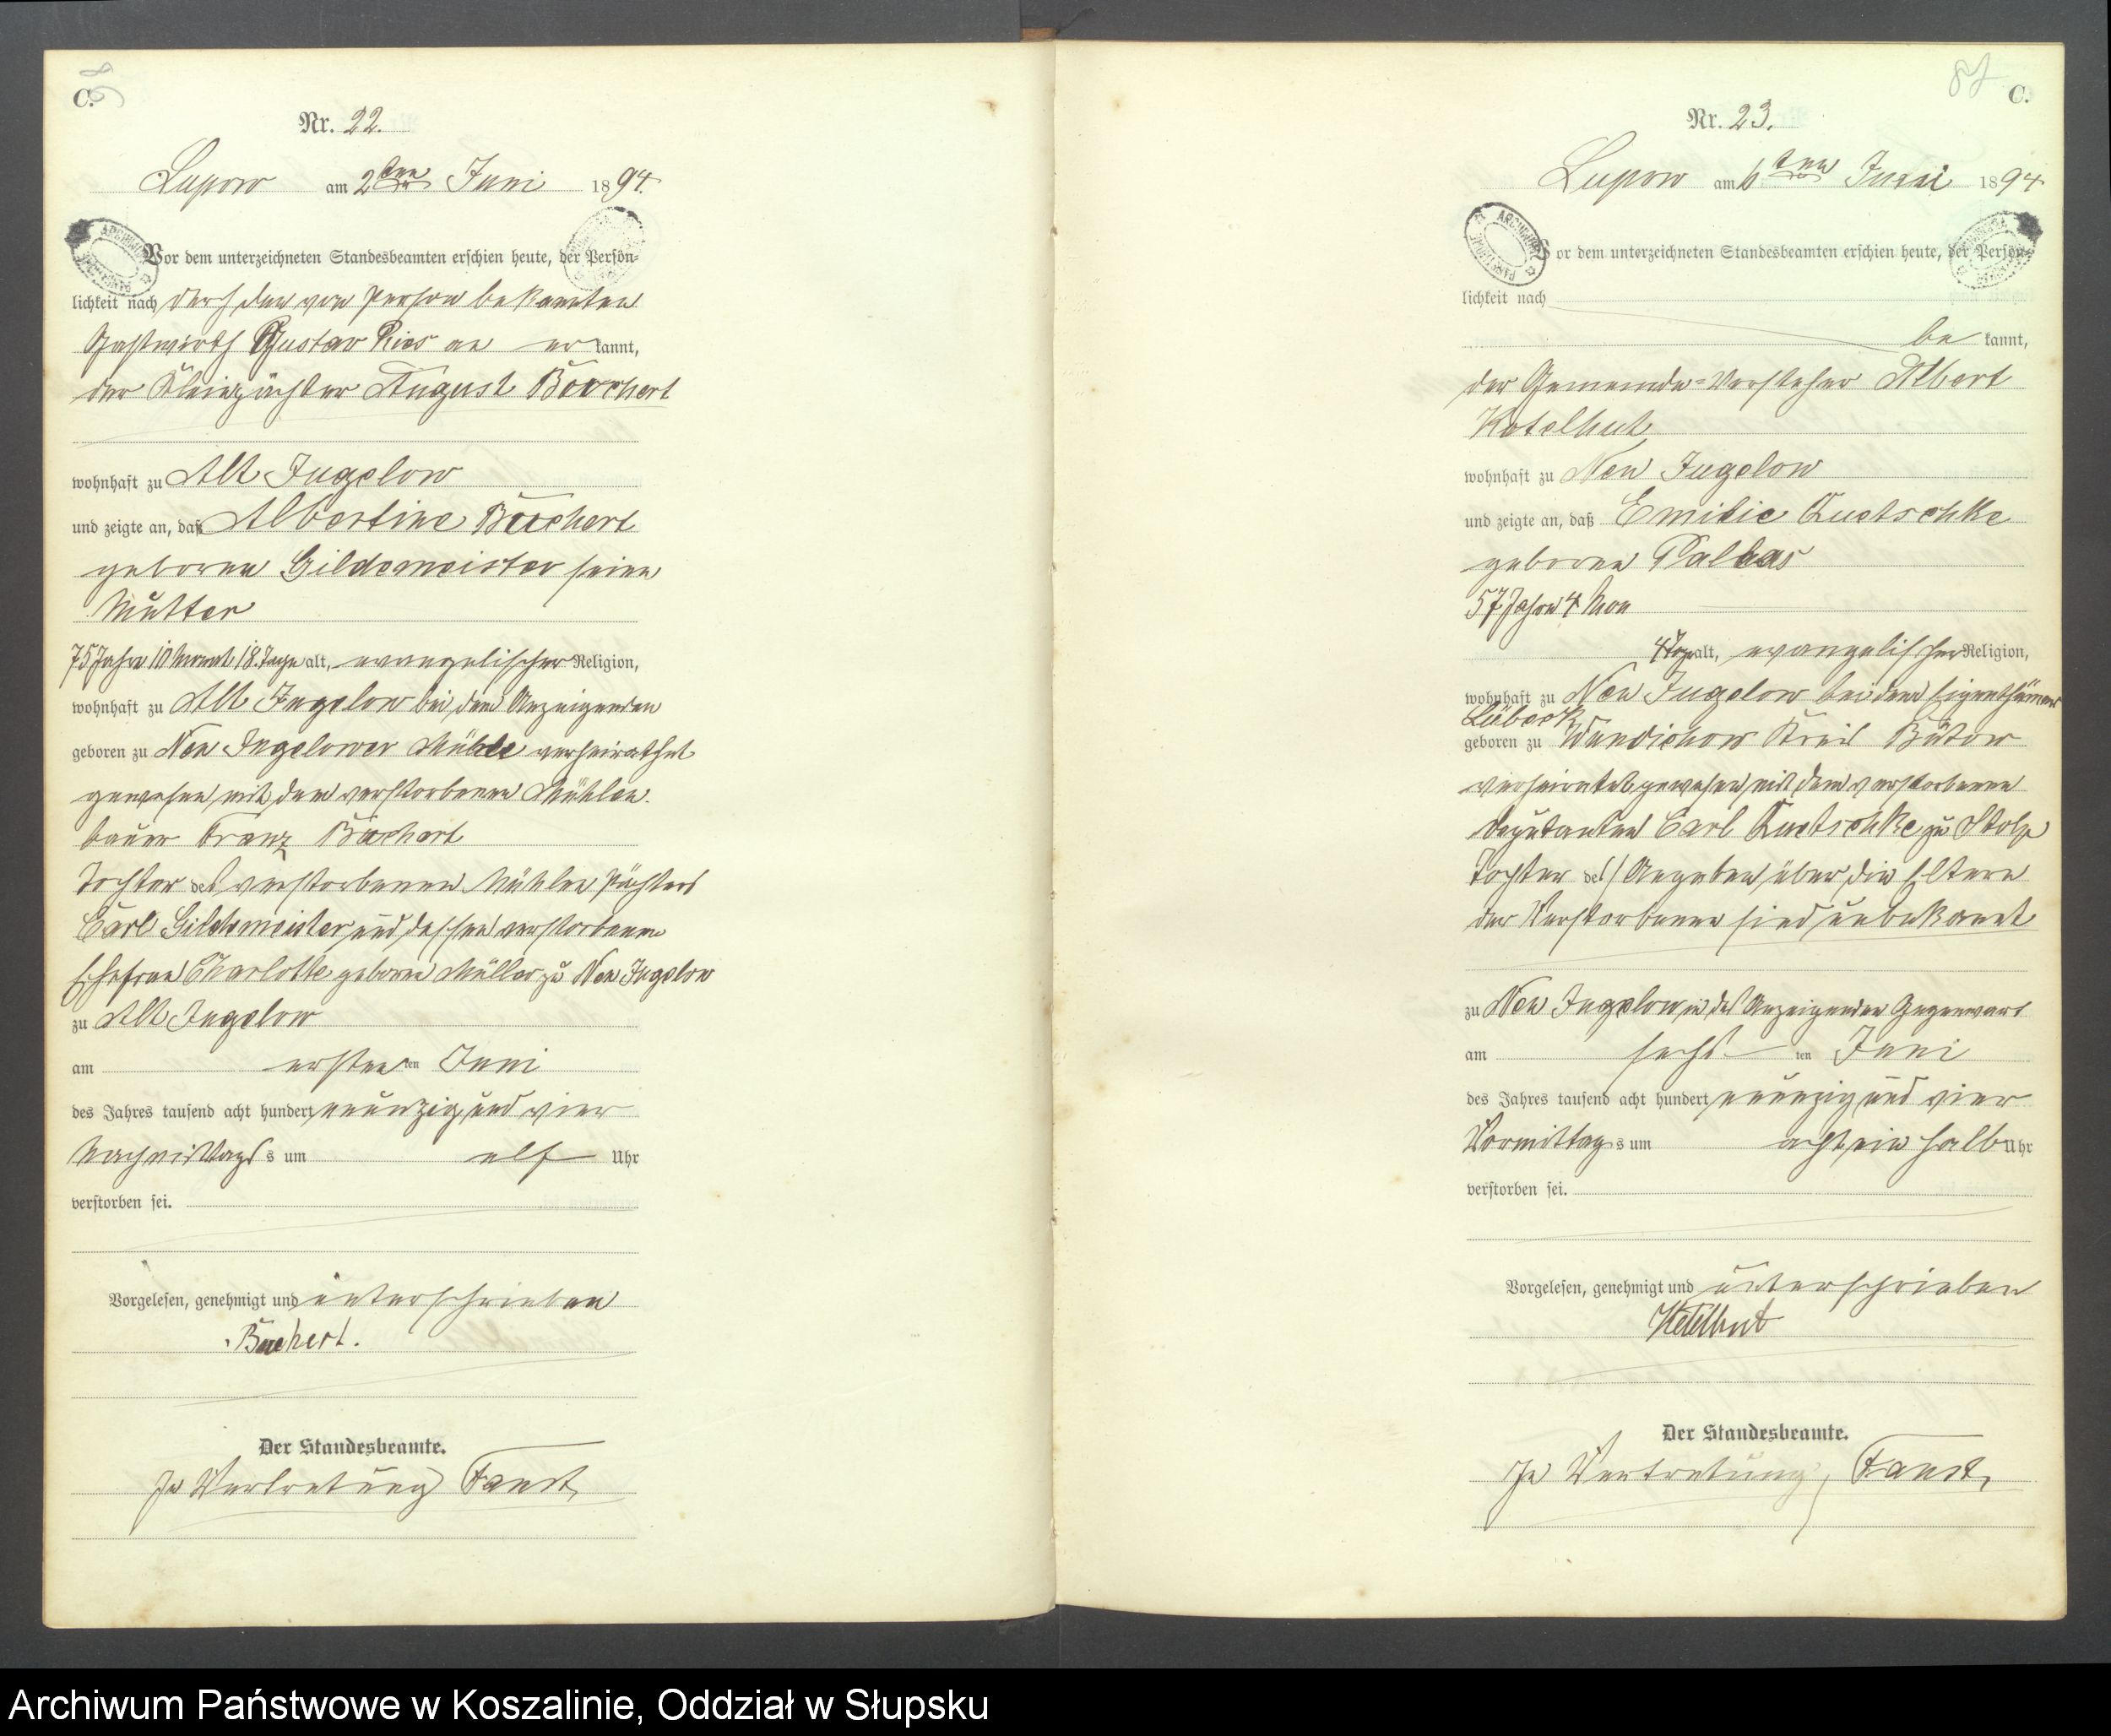 C.
Nr. 22.
Lupow am 2ten Juni 1894.
Vor dem unterzeichneten Standesbeamten erschien heute, der Persön-
lichkeit nach durch den von Person bekannten
Gastwirth Gustav Ries an erkannt,
der Kleinpächter August
wohnhaft zu Alt Jugelow
und zeigte an, daß Albertine
geborene Gildemeister seine
Mutter
75 Jahre 10 Monat 18 Tage alt, evangelischer Religion,
wohnhaft zu Alt Jugelow bei dem Anzeigenden
geboren zu Neu Jugelower Mühle verheirathet
gewesen mit dem verstorbenen Mühlen-
bauer Franz
Tochter des verstorbenen Mühlen Pächters
Carl Gildemeister und dessen verstorbenen
Ehefrau Charlotte geborene Müller zu Neu Jugelow
zu Alt Jugelow
am ersten ten Juni
des Jahres tausend acht hundert neunzig und vier
Nachmittags s um elf Uhr
verstorben sei.
Vorgelesen, genehmigt und unterschrieben
Der Standesbeamte.
In Vertretung Faust
C.
Nr. 23.
Lupow am 6ten Juni 1894
Vor dem unterzeichneten Standesbeamten erschien heute, der Persön-
lichkeit nach
be kannt,
der Gemeinde-Vorsteher Albert
Ketelhut
wohnhaft zu Neu Jugelow
und zeigte an, daß Emilie Kuetschke
geborene Pallas
57 Jahre 4 Mon
4 Tage alt, evangelischer Religion,
wohnhaft zu Neu Jugelow bei dem Eigenthümer
Lübeck
geboren zu Wundichow Kreis Bütow
verheiratet gewesen mit dem verstorbenen
Deputanten Carl Kuetschke zu Stolp
Tochter des / Angaben über die Eltern
der Verstorbenen sind unbekannt
zu Neu Jugelow in des Anzeigenden Gegenwart
am sechs ten Juni
des Jahres tausend acht hundert neunzig und vier
Vormittag s um acht ein halb Uhr
verstorben sei.
Vorgelesen, genehmigt und unterschrieben
Ketelhut
Der Standesbeamte.
In Vertretung, Faust,
Archiwum Państwowe w Koszalinie, Oddział w Słupsku